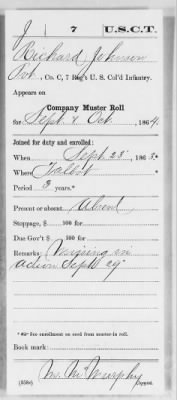 J 7 U.S.C.T.
Richard Johnson
Pvt., Co. C, 7 Reg't U.S. Col'd Infantry.
Appears on
Company Muster Roll
for Sept & Oct, 1864.
Joined for duty and enrolled:
When Sept. 25, 1863.*
Where Talbot
Period 3 years.*
Present or absent Absent
Stoppage, $ 100 for
Due Gov't $ 100 for
Remarks: Missing in
action Sept 29
*See enrollment on card from muster-in roll.
Book mark:
W. M. Murphy
(358c) Copyist.